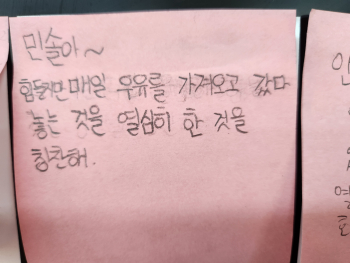 민솔아~
힘들지만 매일 우유를 가져오고 갔다
놓는 것을 열심히 한 것을
칭찬해.
인
열